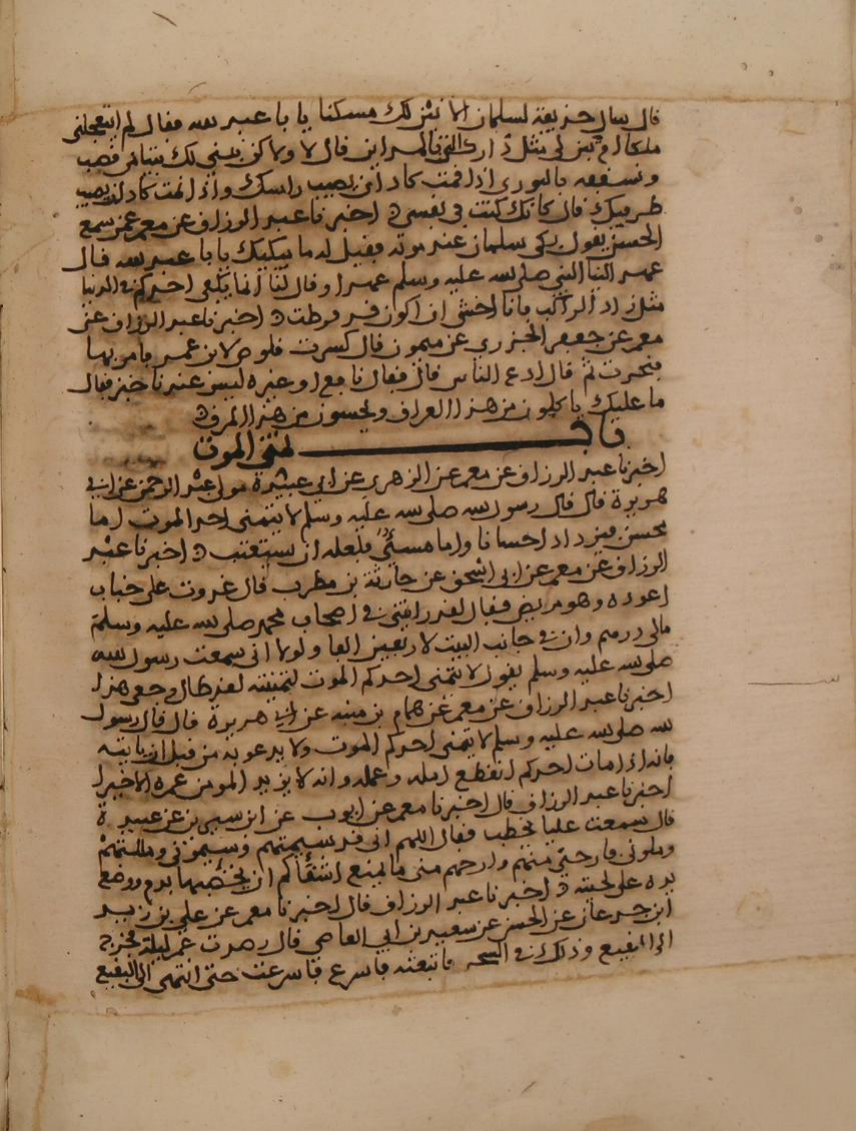 قال سال حذيفة لسلمان الا نبني لك مسكنا يا با عبد الله فقال لم اتجعلني
ملكا ام تبني لي مثل دارك التي بالمداين قال لا ولاكن نبني لك بيتا من قصب
ونسقفه بالبوري اذا قمت كاد ان يصيب راسك واذا نمت كاد ان يصيب
طرفيك قال كانك كنت في نفسي اخبرنا عبد الرزاق عن معمر عمن سمع
الحسن يقول بكى سلمان عند موته فقيل له ما يبكيك يا با عبد الله قال
عهد الينا النبي صلى الله عليه وسلم عهدا وقال لنا انما يكفي احدكم من الدنيا
مثل زاد الراكب فانا اخشى ان اكون قد فرطت اخبرنا عبد الرزاق عن
معمر عن جعفر الجزري عن ميمون قال كسرت قلوص لابن عمر فامر بها
فنحرت ثم قال ادع الناس قال فقال نافع او غيره ليس عندنا خبز فقال
ما عليك ياكلون من هذا العراق ويحسون من هذا المرق
باب تمني الموت
اخبرنا عبد الرزاق عن معمر عن الزهري عن ابي عبيدة مولى عبد الرحمن عن ابي
هريرة قال قال رسول الله صلى الله عليه وسلم لا يتمنى احد الموت اما
محسن فيزداد احسانا واما مسيء فلعله ان يستعتب اخبرنا عبد
الرزاق عن معمر عن ابي اسحق عن حارثة بن مضرب قال غدوت على خباب
اعوده وهو مريض فقال لقد رايتني في اصحاب محمد صلى الله عليه وسلم
مالي درهم وان في جانب البيت لاربعين الفا ولولا اني سمعت رسول الله
صلى الله عليه وسلم يقول لا يتمنى احدكم الموت لتمنيته لقد طال وجعي هذا
اخبرنا عبد الرزاق عن معمر عن همام بن منبه عن ابي هريرة قال قال رسول
الله صلى الله عليه وسلم لا يتمنى احدكم الموت ولا يدعو به من قبل ان ياتيه
فانه اذا مات احدكم انقطع امله وعمله وانه لا يزيد المومن عمره الا خيرا
اخبرنا عبد الرزاق قال اخبرنا معمر عن ايوب عن ابن سيرين عن عبيدة
قال سمعت عليا يخطب فقال اللهم اني قد سيمتهم وسيموني ومللتهم
وملوني فارحني منهم وارحهم مني ما يمنع اشقاكم ان يخضبها بدم ووضع
يده على لحيته اخبرنا عبد الرزاق قال اخبرنا معمر عن علي بن زيد
ابن جدعان عن الحسن عن سعيد بن ابي العاصي قال رصدت عمر ليلة فخرج
الى البقيع وذلك في السحر فاتبعته فاسرع فاسرعت حتى انتهى الى البقيع